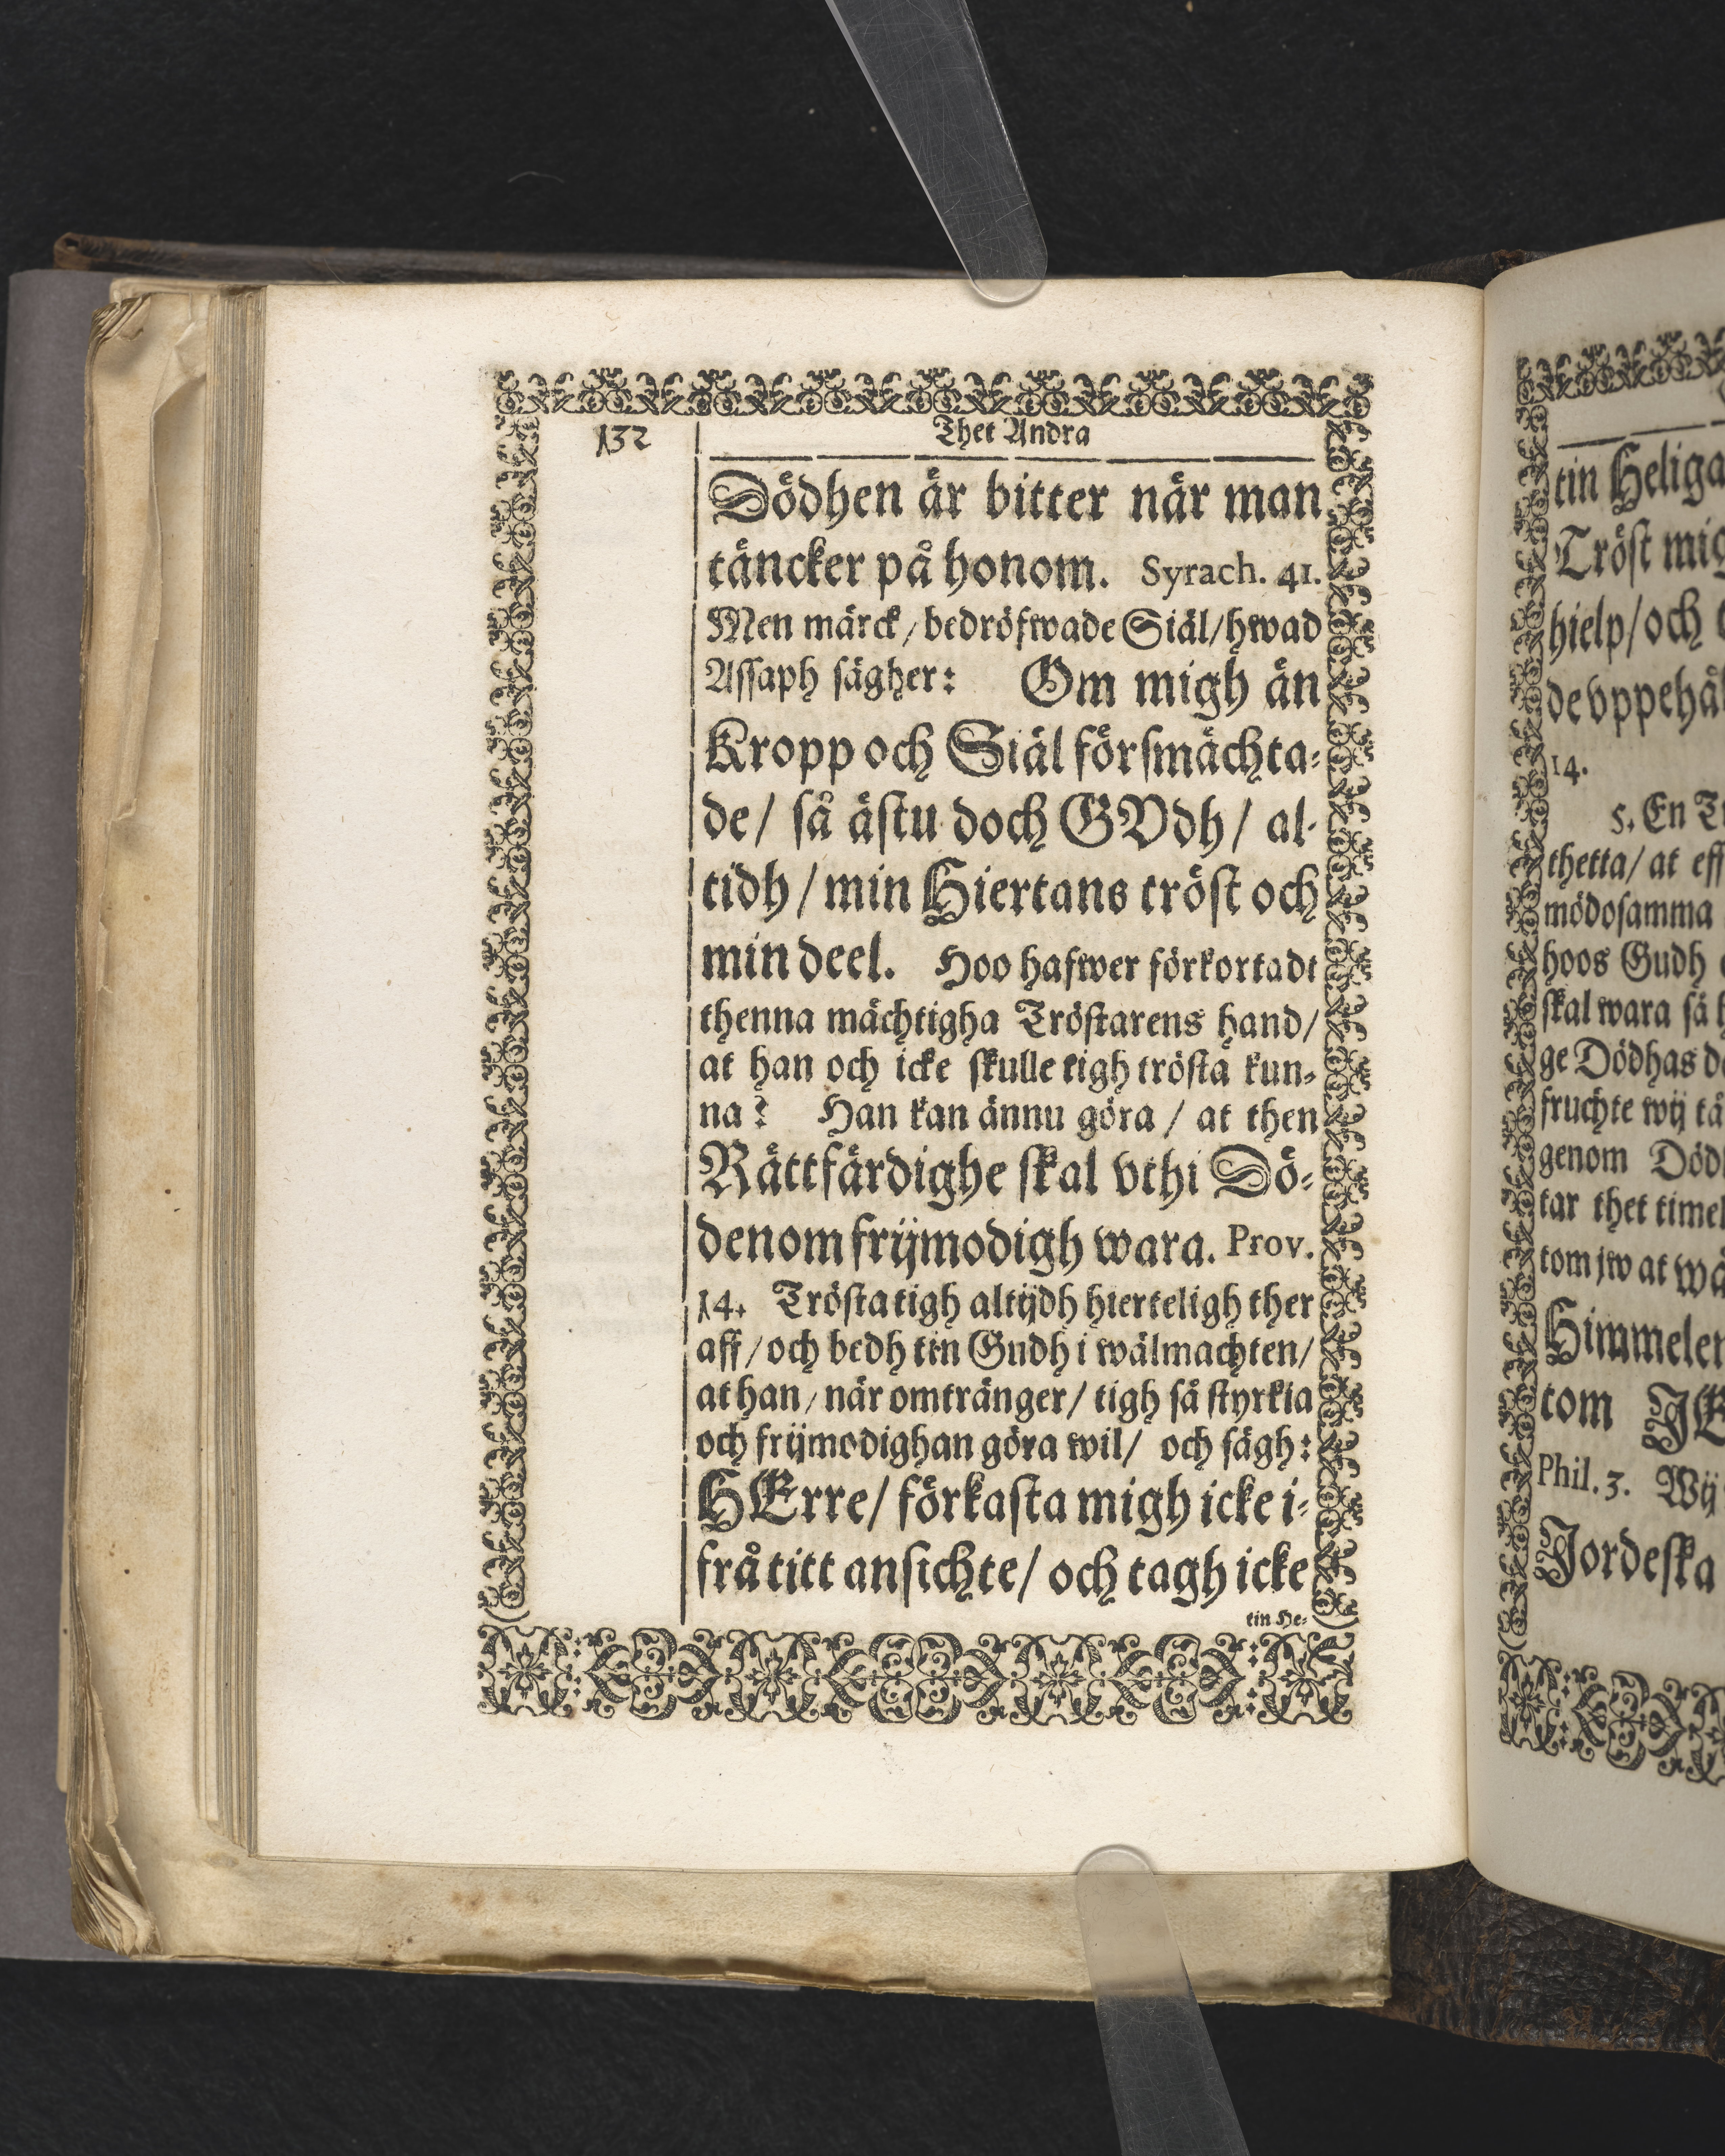 132
Thet Andra
Dödhen är bitter när man
täncker på honom. Syrach. 41.
Men märck / bedröfwade Siäl / hwad
Assaph sägher: Om migh än
Kropp och Siäl försmächta-
de / så ästu doch GVdh / al-
tidh / min Hiertans tröst och
min deel. Hoo hafwer förkortadt
thenna mächtigha Tröstarens hand /
at han och icke skulle tigh trösta kun-
na? Han kan ännu göra / at then
Rättfärdighe skal vthi Dö-
denom frijmodigh wara. Prov.
14. Trösta tigh altijdh hierteligh ther
aff / och bedh tin Gudh i wälmachten /
at han / när omtränger / tigh så styrkia
och frijmodighan göra wil / och sägh:
HErre / förkasta migh icke i-
frå titt ansichte / och tagh icke
tin He-
tin Heliga
Tröst mig
hielp / och
de vppehål
14.
5. En
thetta / at eff
mödosamma
hoos Gudh
skal wara så
ge Dödhas
fruchte wij
genom
tar thet
tom jw at
Himmelen
tom
Phil. 3. Wij
Jordeska